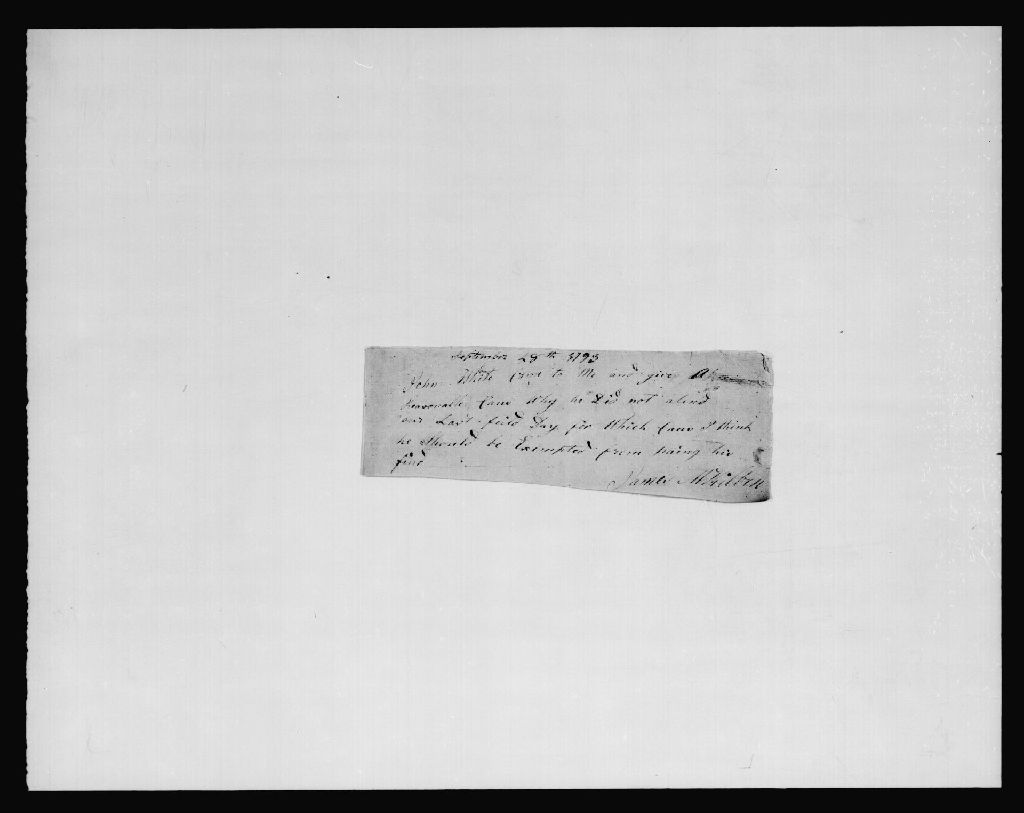 September 28th 1793
John White Came to Me and give A
Reasonable Caus Why he Did not atend
our Last field Day for Which Caus I think
he Should be Exempted from paing his
fine
James